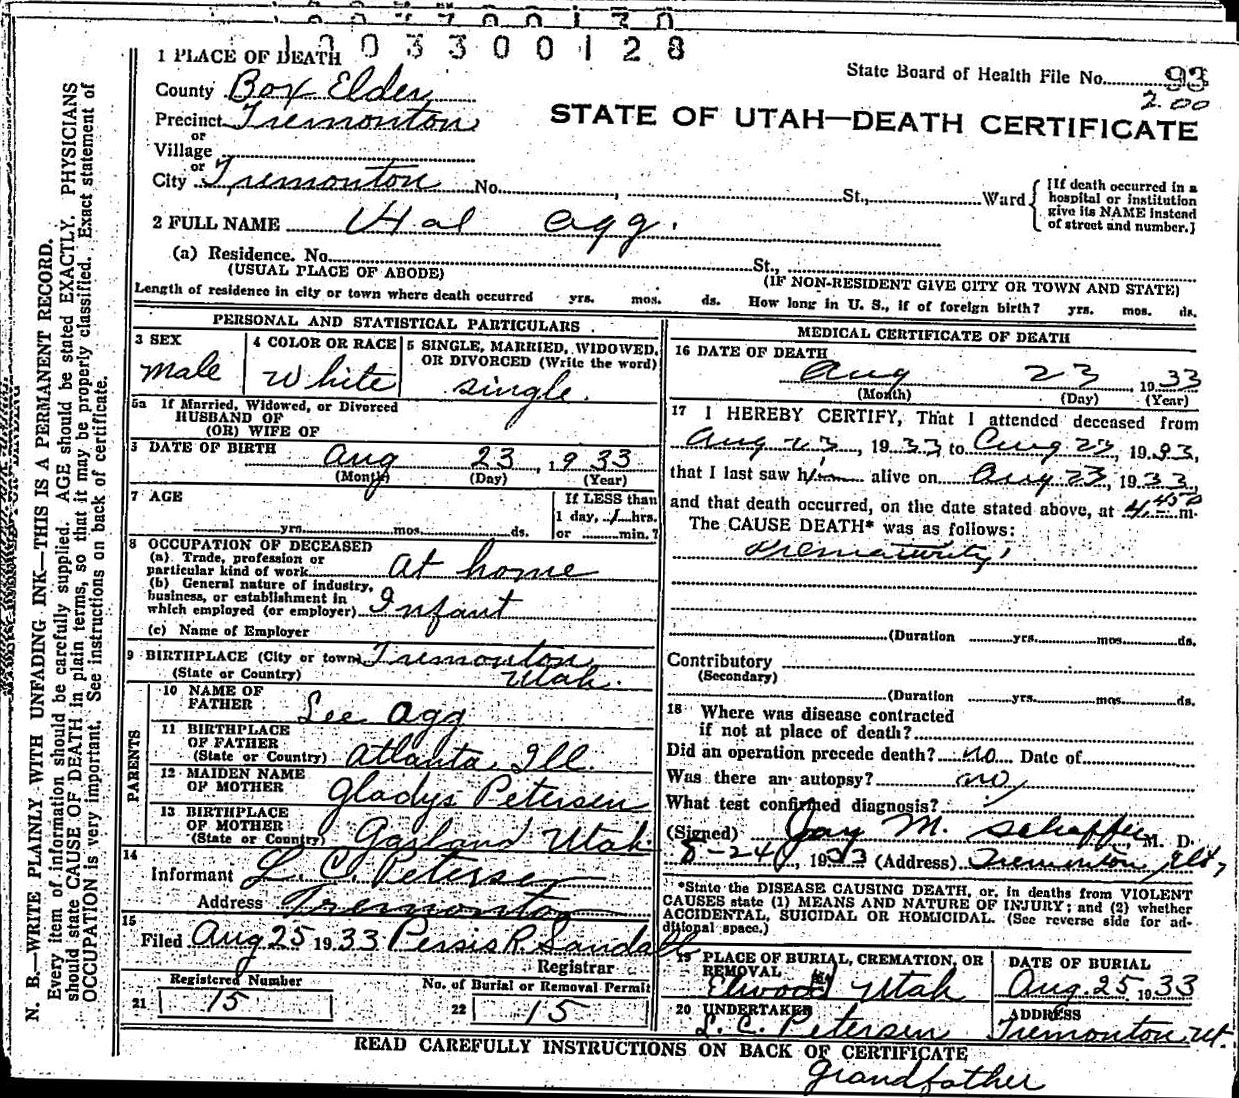 1003300128
1 PLACE OF DEATH
State Board of Health File No. 93
200
County Box Elder
STATE OF UTAH—DEATH CERTIFICATE
Precinct Tremonton
or
Village
or
City Tremonton No. , St., Ward
[If death occurred in a
hospital or institution
give its NAME instead
of street and number.]
2 FULL NAME Hal Agg.
(a) Residence. No. St.,
(USUAL PLACE OF ABODE) (IF NON-RESIDENT GIVE CITY OR TOWN AND STATE)
Length of residence in city or town where death occurred yrs. mos. ds. How long in U. S., if of foreign birth? yrs. mos. ds.
PERSONAL AND STATISTICAL PARTICULARS
3 SEX
male
4 COLOR OR RACE
White
5 SINGLE, MARRIED, WIDOWED,
OR DIVORCED (Write the word)
single.
5a If Married, Widowed, or Divorced
HUSBAND OF
(OR) WIFE OF
DATE OF BIRTH Aug 23, 1933
(Month) (Day) (Year)
7 AGE
yrs. mos. ds.
If LESS than
1 day, 1 hrs.
or min.?
8 OCCUPATION OF DECEASED
(a) Trade, profession or
particular kind of work At home
(b) General nature of industry,
business, or establishment in
which employed (or employer) Infant
(c) Name of Employer
9 BIRTHPLACE (City or town) Tremonton,
(State or Country) Utah.
PARENTS
10 NAME OF
FATHER Lee Agg
11 BIRTHPLACE
OF FATHER
(State or Country) Atlanta, Ill.
12 MAIDEN NAME
OF MOTHER Gladys Petersen
13 BIRTHPLACE
OF MOTHER
(State or Country) Garland Utah.
14
Informant L. C. Petersen
Address Tremonton
15
Filed Aug 25 1933 Persis R. Sandall
Registrar
Registered Number
21 15
No. of Burial or Removal Permit
22 15
MEDICAL CERTIFICATE OF DEATH
16 DATE OF DEATH
Aug 23, 1933
(Month) (Day) (Year)
17 I HEREBY CERTIFY, That I attended deceased from
Aug 23, 1933 to Aug 23, 1933,
that I last saw him alive on Aug 23, 1933,
and that death occurred, on the date stated above, at m.
The CAUSE DEATH* was as follows:
Prematurity
(Duration yrs. mos. ds.
Contributory
(Secondary)
(Duration yrs. mos. ds.
18 Where was disease contracted
if not at place of death?
Did an operation precede death? no Date of
Was there an autopsy? no
What test confirmed diagnosis?
(Signed) Jay M. Schaffer, M. D.
8-24, 1933 (Address) Tremonton,
*State the DISEASE CAUSING DEATH, or, in deaths from VIOLENT
CAUSES state (1) MEANS AND NATURE OF INJURY; and (2) whether
ACCIDENTAL, SUICIDAL OR HOMICIDAL. (See reverse side for ad-
ditional space.)
19 PLACE OF BURIAL, CREMATION, OR
REMOVAL
Elwood Utah
DATE OF BURIAL
Aug. 25, 1933
20 UNDERTAKER
L. C. Petersen
ADDRESS
Tremonton, Ut.
READ CAREFULLY INSTRUCTIONS ON BACK OF CERTIFICATE
Grandfather
N. B.—WRITE PLAINLY WITH UNFADING INK—THIS IS A PERMANENT RECORD.
Every item of information should be carefully supplied. AGE should be stated EXACTLY. PHYSICIANS
should state CAUSE OF DEATH in plain terms, so that it may be properly classified. Exact statement of
OCCUPATION is very important. See instructions on back of certificate.